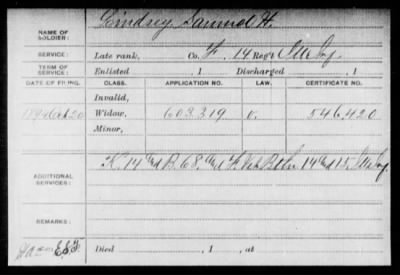 NAME OF SOLDIER: Lindsey, Samuel H.
SERVICE: Late rank, Co. F. 14 Reg't Me Inf
TERM OF SERVICE: Enlisted , 1 Discharged , 1
DATE OF FILING. CLASS. APPLICATION NO. LAW. CERTIFICATE NO.
Invalid,
Oct 20 Widow, 603.319 546.420
Minor,
ADDITIONAL SERVICES: K. 14 and B. 68. 14 and 15.
REMARKS:
Died , 1 , at